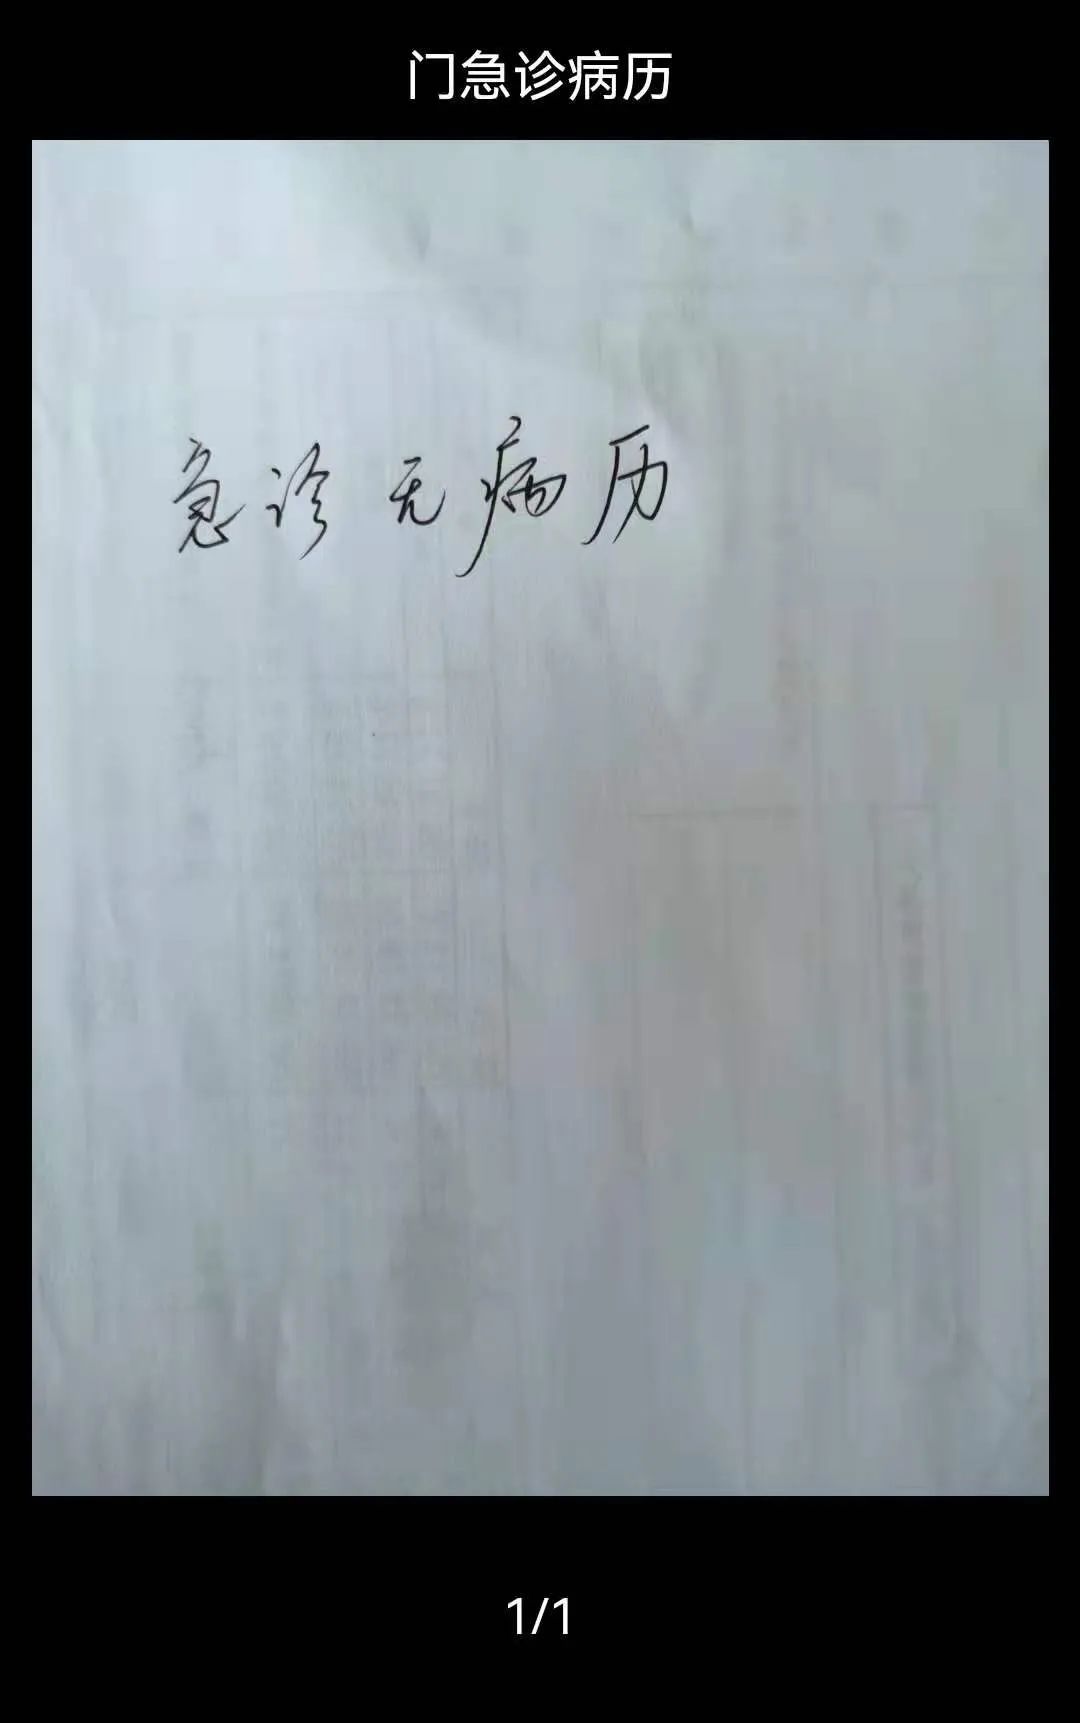 门急诊病历
急诊无病历
1/1